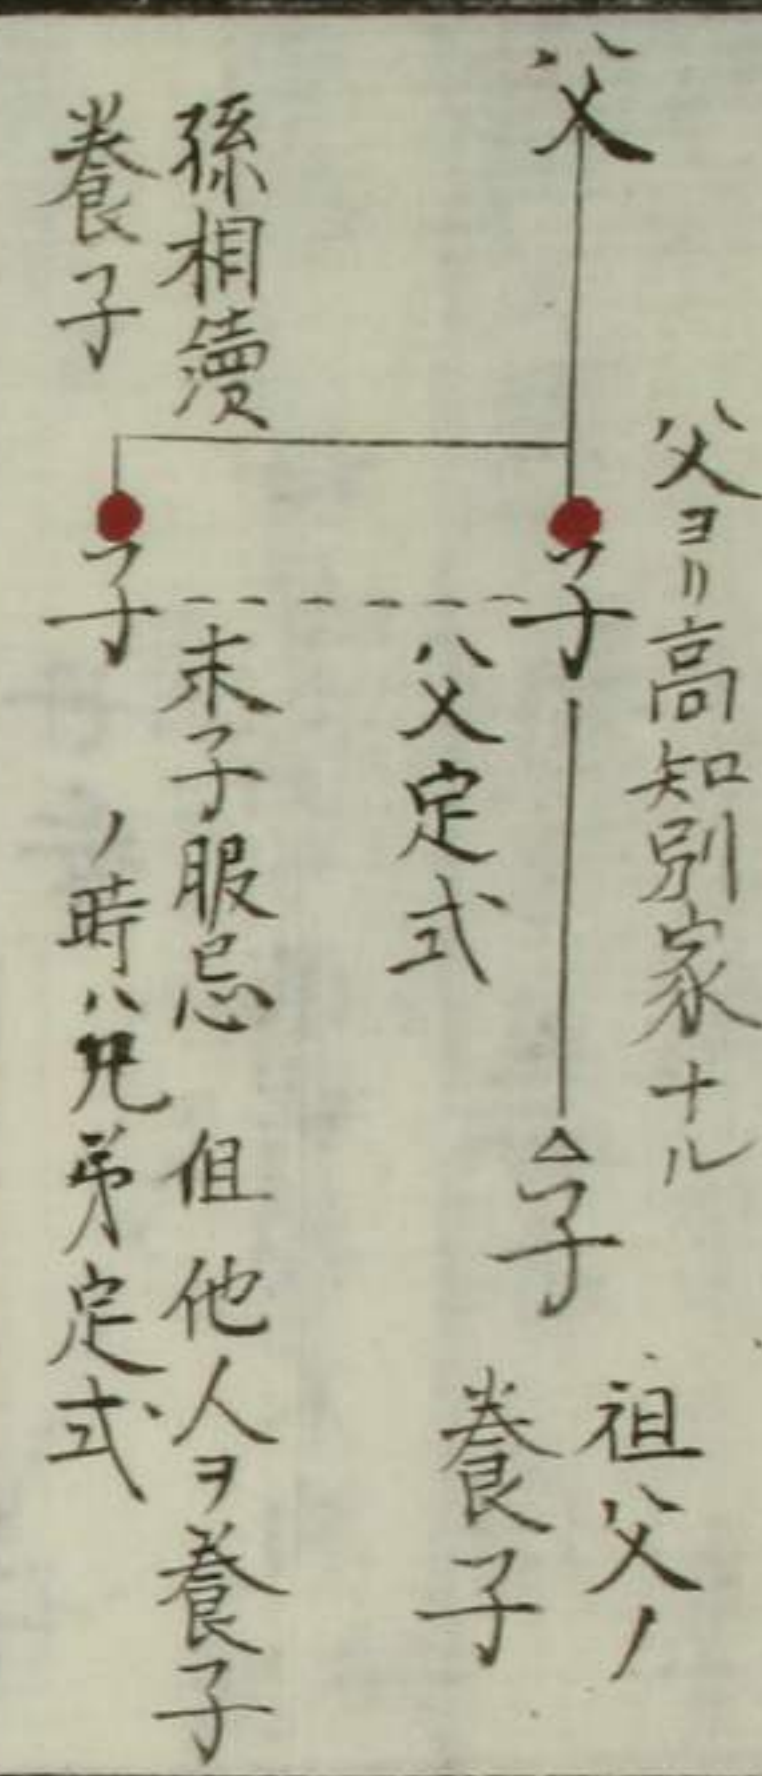 父ヨリ高知別家ナル
父
子
子
祖父ノ
養子
八父定式
孫相續
養子
子
末子服忌 但他人ヲ養子
ノ時ハ兄弟定式